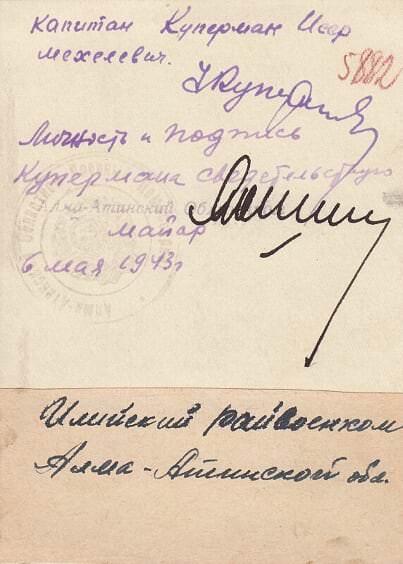 капитан Куперман Исер
Мехелевич.
5882
ИКуперман
Личность и подпись
Купермана свидетельствую
Алма-Атинский Об
майор
6 мая 1943г
Илийский райвоенком
Алма-Атинской обл.